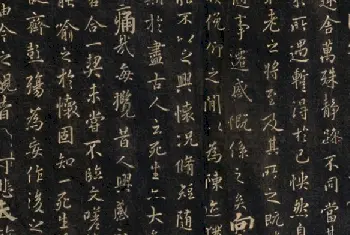 舍萬殊靜躁不同當其
於所遇暫得於己怏然自
老之將至及其所之既
隨事遷感慨係之矣向
欣俛仰之間以為陳迹
能不以之興懷況脩短隨
期於盡古人云死生亦大
痛哉每攬昔人興感
合一契未嘗不臨文嗟
喻之於懷固知一死生
齊彭殤為妄作後之
由今之視昔